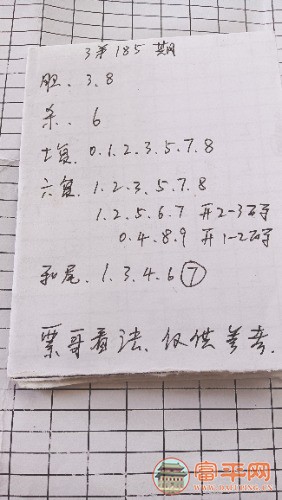 3弟185期
胆、3.8
杀、6
七复、0.1.2.3.5.7.8
六复、1.2.3.5.7.8
1.2.5.6.7 开2-3码
0.4.8.9 开1-2码
和尾、1.3.4.6⑦
票哥看法、仅供参考.
富平网